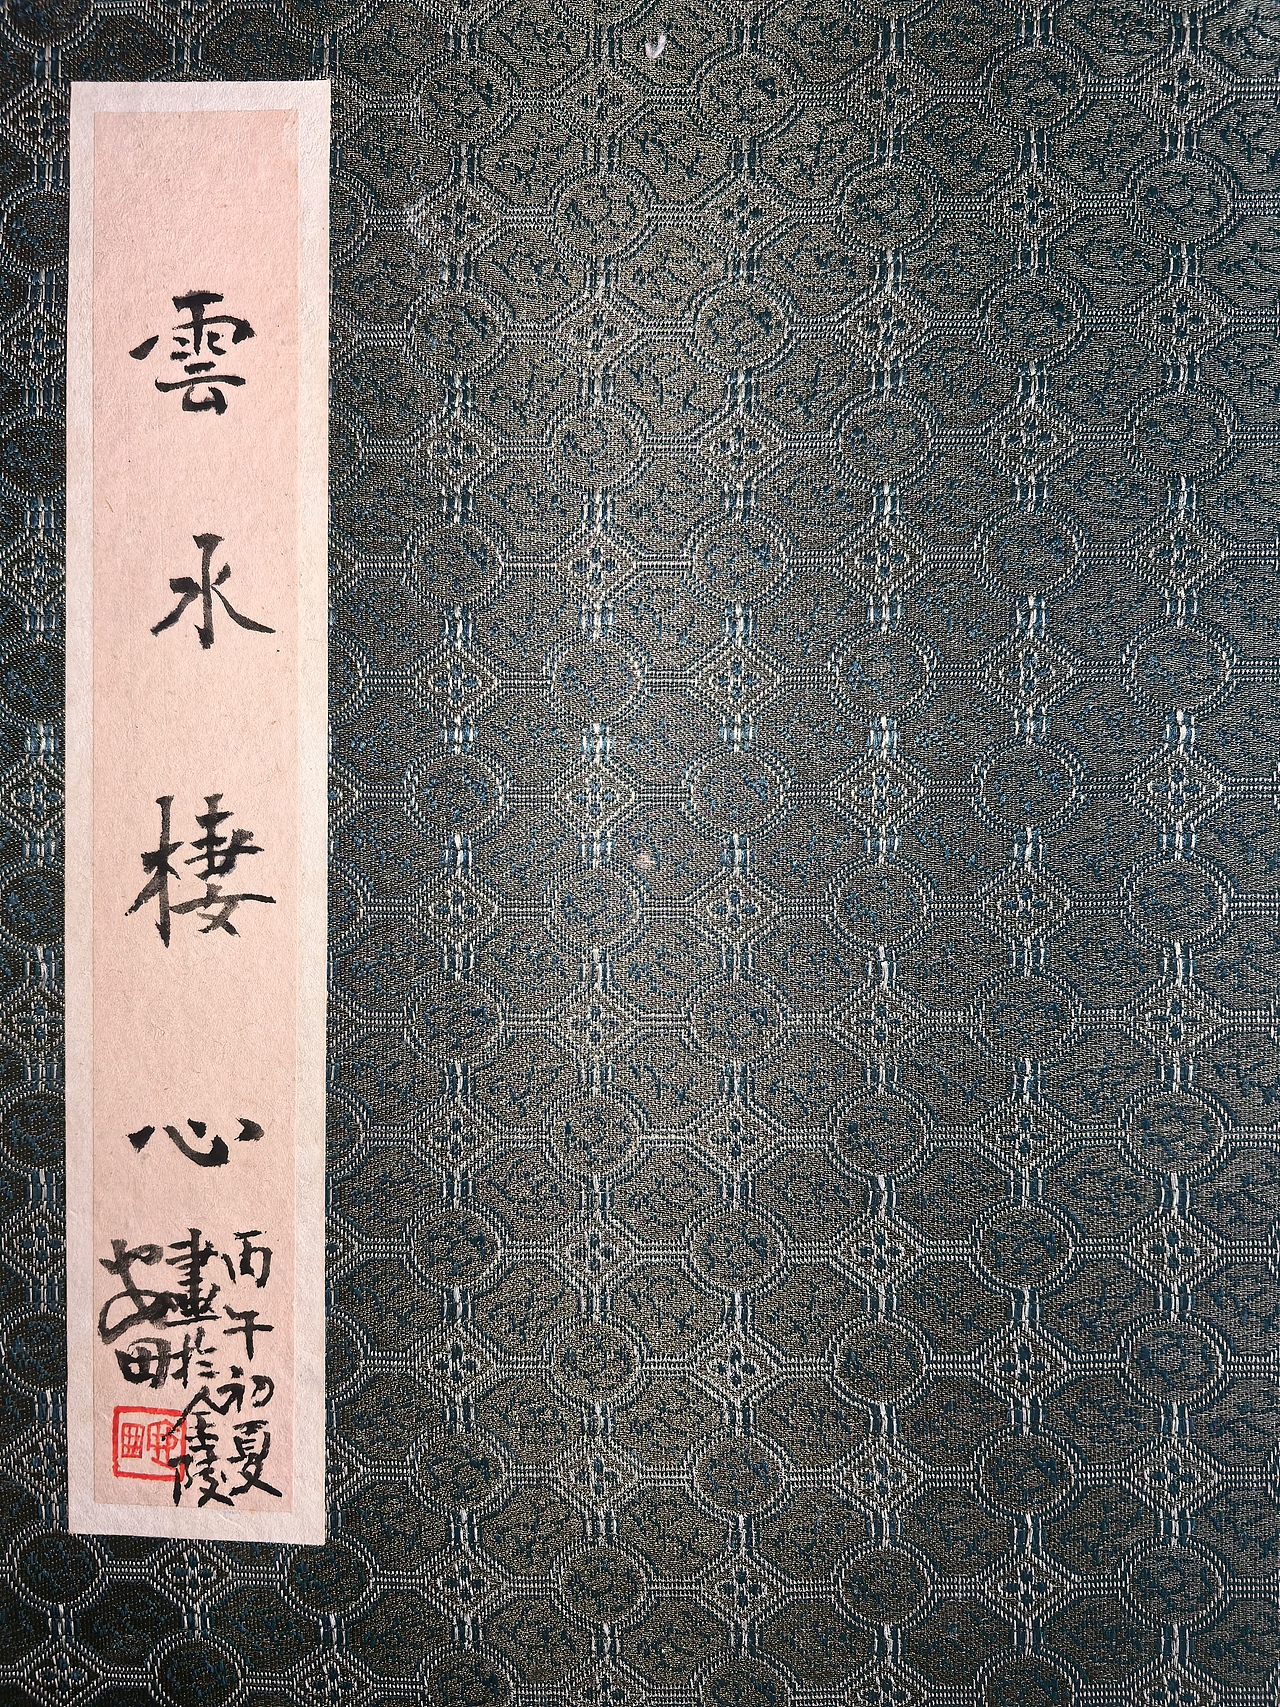 雲水棲心
丙午初夏
畫於金陵
安田